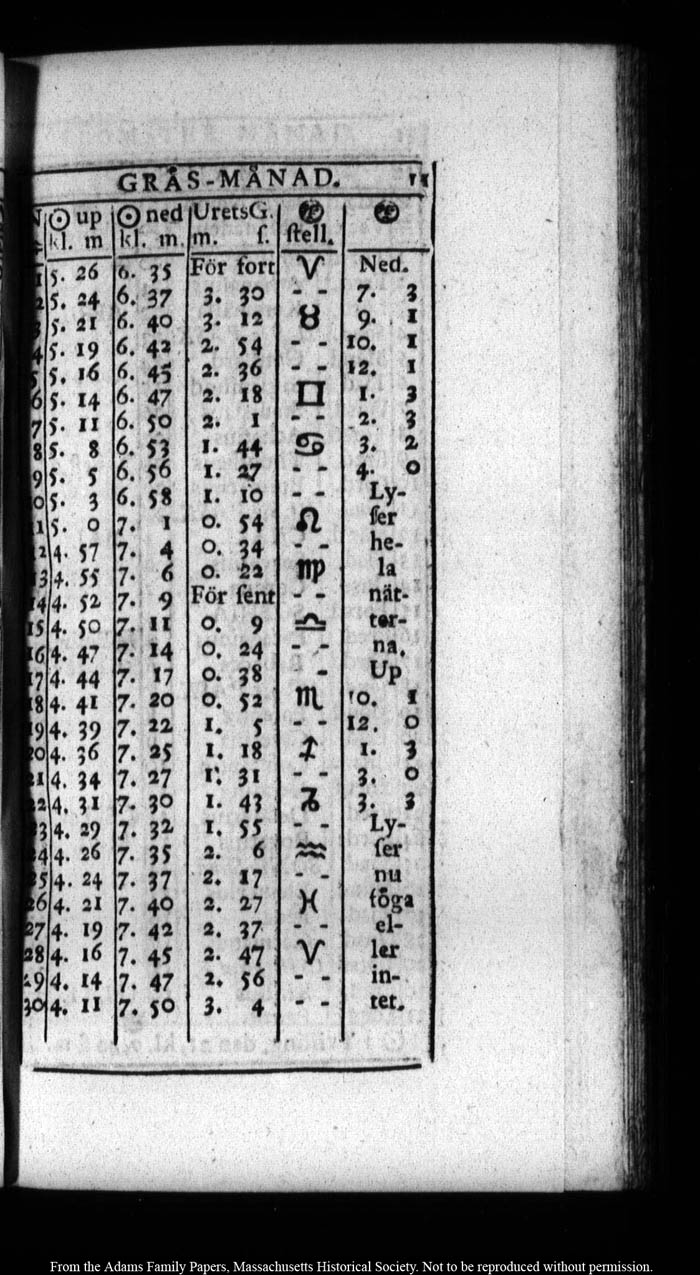 GRÅS-MÅNAD. 11
☉ up ☉ ned UretsG.
kl. m kl. m. m. ſ. ſtell.
1 5. 26 6. 35 För fort ♈ Ned.
2 5. 24 6. 37 3. 30 - - 7. 3
3 5. 21 6. 40 3. 12 ♉ 9. 1
4 5. 19 6. 42 2. 54 - - 10. 1
5 5. 16 6. 45 2. 36 - - 12. 1
6 5. 14 6. 47 2. 18 ♊ 1. 3
7 5. 11 6. 50 2. 1 - - 2. 3
8 5. 8 6. 53 1. 44 ♋ 3. 2
9 5. 5 6. 56 1. 27 - - 4. 0
0 5. 3 6. 58 1. 10 - - Ly-
11 5. 0 7. 1 0. 54 ♌ ſer
12 4. 57 7. 4 0. 34 - - he-
13 4. 55 7. 6 0. 22 ♍ la
14 4. 52 7. 9 För ſent - - nät-
15 4. 50 7. 11 0. 9 ♎ ter-
16 4. 47 7. 14 0. 24 - - na.
17 4. 44 7. 17 0. 38 - Up
18 4. 41 7. 20 0. 52 ♏ 10. 1
19 4. 39 7. 22 1. 5 - - 12. 0
20 4. 36 7. 25 1. 18 ♐ 1. 3
21 4. 34 7. 27 1. 31 - - 3. 0
22 4. 31 7. 30 1. 43 ♑ 3. 3
23 4. 29 7. 32 1. 55 - - Ly-
24 4. 26 7. 35 2. 6 ♒ ſer
25 4. 24 7. 37 2. 17 - - nu
26 4. 21 7. 40 2. 27 ♓ föga
27 4. 19 7. 42 2. 37 - - el-
28 4. 16 7. 45 2. 47 ♈ ler
29 4. 14 7. 47 2. 56 - - in-
30 4. 11 7. 50 3. 4 - - tet.
From the Adams Family Papers, Massachusetts Historical Society. Not to be reproduced without permission.